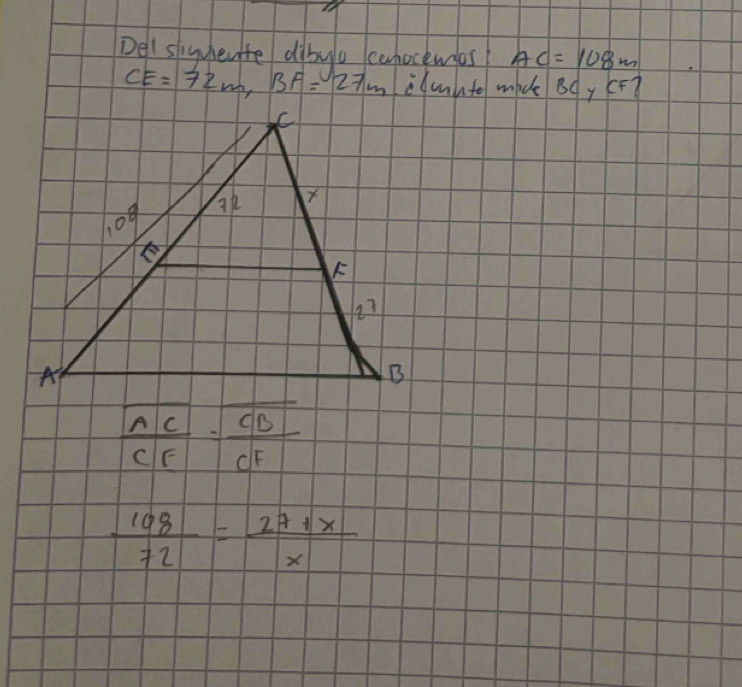 Del siguiente dibujo conocemos: AC = 108m
CE = 72m, BF = 27m ¿Cuánto mide BC y CF?
C
108
72
x
E
F
27
A
B
AC = CB
CE CF
108 = 27 + x
72 x